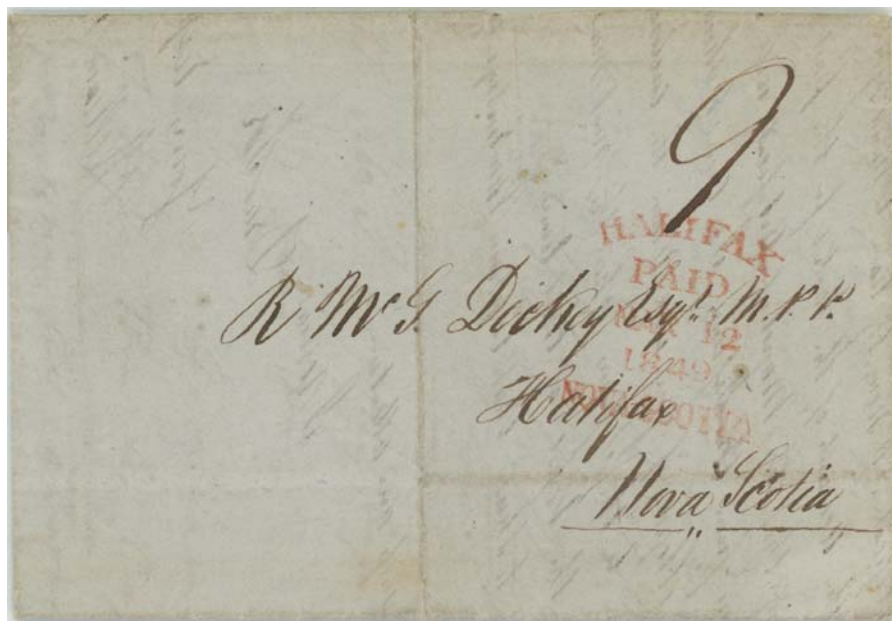 9
HALIFAX
PAID
12
1849
NOVA SCOTIA
R McG. Dickey Esqr. M.P.P.
Halifax
Nova Scotia